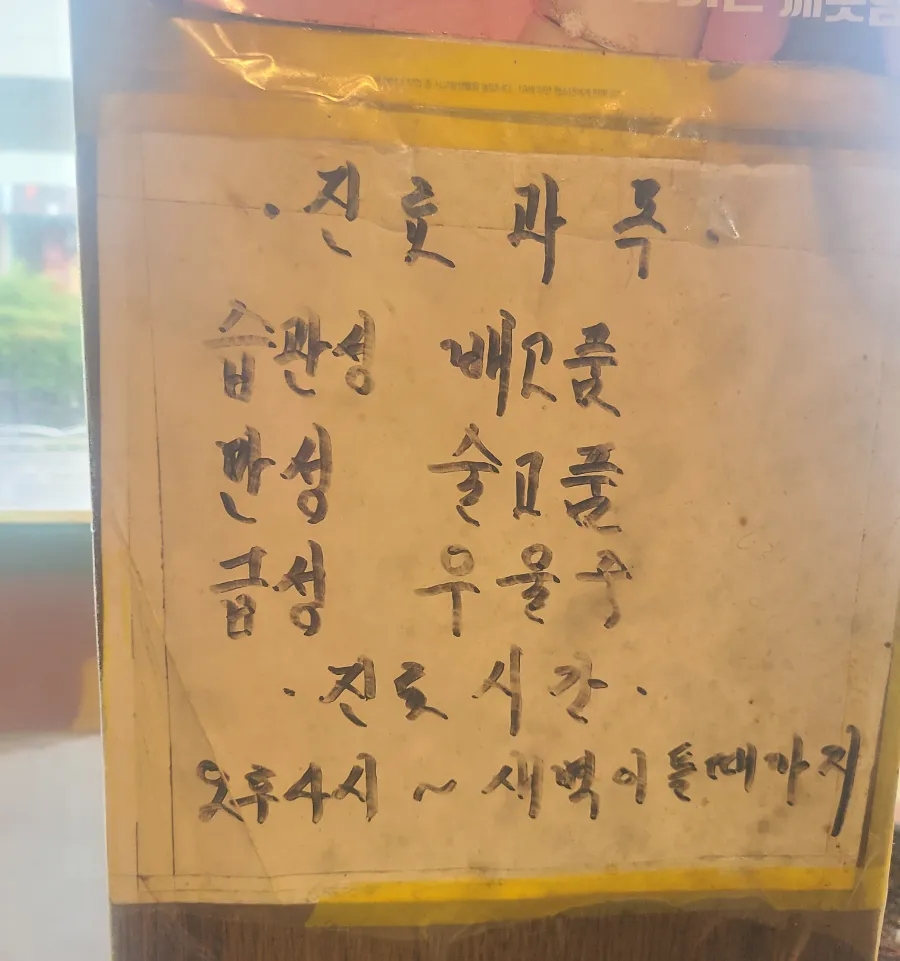 · 진료과목 ·
습관성 배고품
만성 술고품
급성 우울증
· 진료시간 ·
오후4시 ~ 새벽이틀때가지